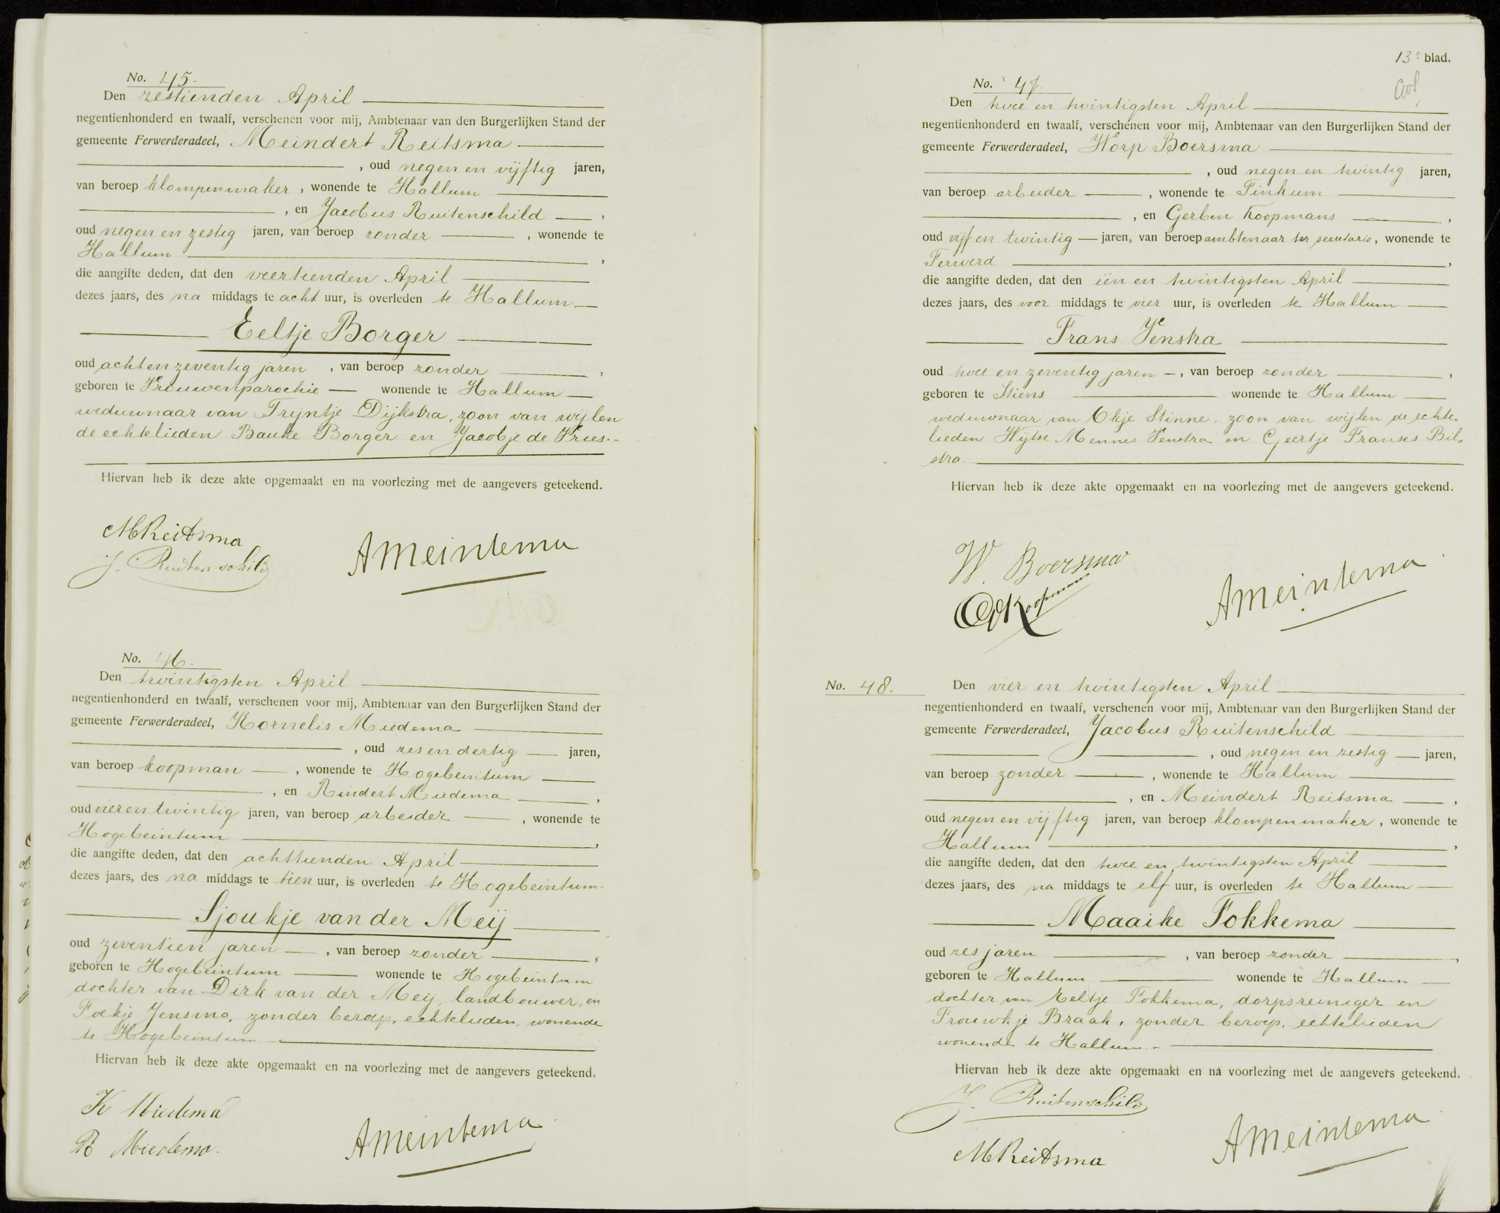 No. 45.
Den zestienden April
negentienhonderd en twaalf, verschenen voor mij, Ambtenaar van den Burgerlijken Stand der
gemeente Ferwerderadeel, Meindert Reitsma
, oud negen en vijftig jaren,
van beroep klompenmaker, wonende te Hallum
, en Jacobus Ruitenschild,
oud negen en zestig jaren, van beroep zonder, wonende te
Hallum,
die aangifte deden, dat den veertienden April
dezes jaars, des na middags te acht uur, is overleden te Hallum
Eeltje Borger
oud acht en zeventig jaren, van beroep zonder,
geboren te Vrouwenparochie wonende te Hallum
weduwnaar van Trijntje Dijkstra, zoon van wijlen
de echtelieden Bauke Borger en Jacobje de Vries.
Hiervan heb ik deze akte opgemaakt en na voorlezing met de aangevers geteekend.
MReitsma
J. Ruitenschild
AMeintema
No. 46.
Den twintigsten April
negentienhonderd en twaalf, verschenen voor mij, Ambtenaar van den Burgerlijken Stand der
gemeente Ferwerderadeel, Kornelis Miedema
, oud zes en dertig jaren,
van beroep koopman, wonende te Hogebeintum
, en Reindert Miedema,
oud vier en twintig jaren, van beroep arbeider, wonende te
Hogebeintum,
die aangifte deden, dat den achttienden April
dezes jaars, des na middags te tien uur, is overleden te Hogebeintum
Sjoukje van der Meij
oud zeventien jaren, van beroep zonder,
geboren te Hogebeintum wonende te Hogebeintum
dochter van Dirk van der Meij, landbouwer, en
Fokje Jensma, zonder beroep, echtelieden, wonende
te Hogebeintum
Hiervan heb ik deze akte opgemaakt en na voorlezing met de aangevers geteekend.
K Miedema
R Miedema.
AMeintema
13e blad.
No. 47.
Den twee en twintigsten April
negentienhonderd en twaalf, verschenen voor mij, Ambtenaar van den Burgerlijken Stand der
gemeente Ferwerderadeel, Worp Boersma
, oud negen en twintig jaren,
van beroep arbeider, wonende te Finkum
, en Gerben Koopmans,
oud vijf en twintig jaren, van beroep ambtenaar ter secretarie, wonende te
Ferwerd,
die aangifte deden, dat den één en twintigsten April
dezes jaars, des voor middags te vier uur, is overleden te Hallum
Frans Venstra
oud twee en zeventig jaren, van beroep zonder,
geboren te Stiens wonende te Hallum
weduwnaar van Okje Stinne, zoon van wijlen de echte-
lieden Wytse Mennes Venstra en Geertje Franses Bil-
stra.
Hiervan heb ik deze akte opgemaakt en na voorlezing met de aangevers geteekend.
W. Boersma
GKoopmans
AMeintema
No. 48.
Den vier en twintigsten April
negentienhonderd en twaalf, verschenen voor mij, Ambtenaar van den Burgerlijken Stand der
gemeente Ferwerderadeel, Jacobus Ruitenschild
, oud negen en zestig jaren,
van beroep zonder, wonende te Hallum
, en Meindert Reitsma,
oud negen en vijftig jaren, van beroep klompenmaker, wonende te
Hallum,
die aangifte deden, dat den twee en twintigsten April
dezes jaars, des na middags te elf uur, is overleden te Hallum
Maaike Fokkema
oud zes jaren, van beroep zonder,
geboren te Hallum wonende te Hallum
dochter van Eeltje Fokkema, dorpsreiniger en
Trouwkje Braak, zonder beroep, echtelieden
wonende te Hallum.
Hiervan heb ik deze akte opgemaakt en na voorlezing met de aangevers geteekend.
J. Ruitenschild
MReitsma
AMeintema